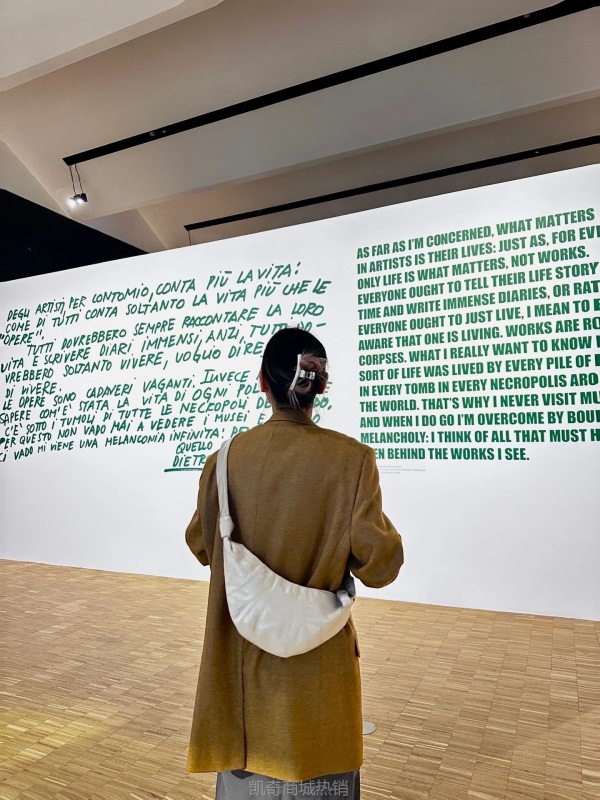 DEGLI ARTISTI, PER CONTO MIO, CONTA PIÙ LA VITA:
COME DI TUTTI CONTA SOLTANTO LA VITA PIÙ CHE LE
"OPERE".
TUTTI DOVREBBERO SEMPRE RACCONTARE LA LORO
VITA E SCRIVERE DIARI IMMENSI, ANZI, TUTTI DO-
VREBBERO SOLTANTO VIVERE, VOGLIO DIRE
DI VIVERE.
LE OPERE SONO CADAVERI VAGANTI. INVECE
SAPERE COM'E' STATA LA VITA DI OGNI
C'E' SOTTO I TUMOLI DI TUTTE LE NECROPOLI
PER QUESTO NON VADO MAI A VEDERE I MUSEI
CI VADO MI VIENE UNA MELANCONIA INFINITA:
QUELLO
DIETRO
AS FAR AS I'M CONCERNED, WHAT MATTERS
IN ARTISTS IS THEIR LIVES: JUST AS, FOR
ONLY LIFE IS WHAT MATTERS, NOT WORKS.
EVERYONE OUGHT TO TELL THEIR LIFE STORY
TIME AND WRITE IMMENSE DIARIES, OR
EVERYONE OUGHT TO JUST LIVE, I MEAN TO
AWARE THAT ONE IS LIVING. WORKS ARE
CORPSES. WHAT I REALLY WANT TO KNOW
SORT OF LIFE WAS LIVED BY EVERY PILE OF
IN EVERY TOMB IN EVERY NECROPOLIS ARO
THE WORLD. THAT'S WHY I NEVER VISIT
AND WHEN I DO GO I'M OVERCOME BY
MELANCHOLY: I THINK OF ALL THAT MUST
EN BEHIND THE WORKS I SEE.
凯奇商城热销